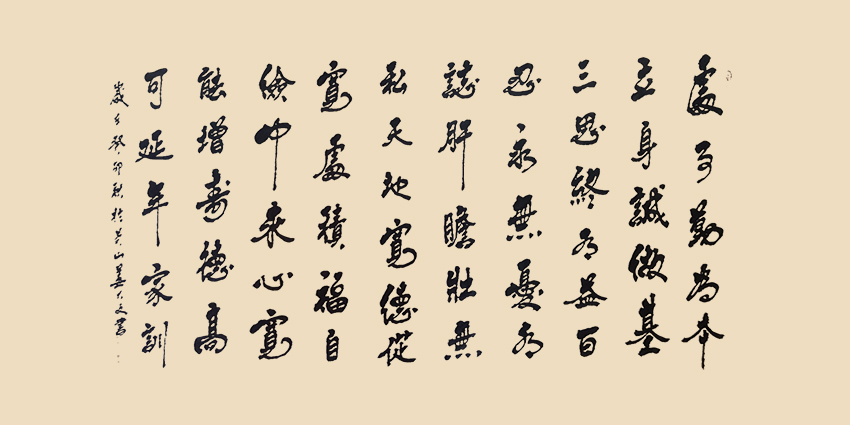 處事勤為本
立身誠做基
三思終有益百
忍永無憂有
誌肝膽壯無
私天地寬德從
寬處積福自
儉中來心寬
能增壽德高
可延年家訓
歲在癸卯秋於黃山姜大文書